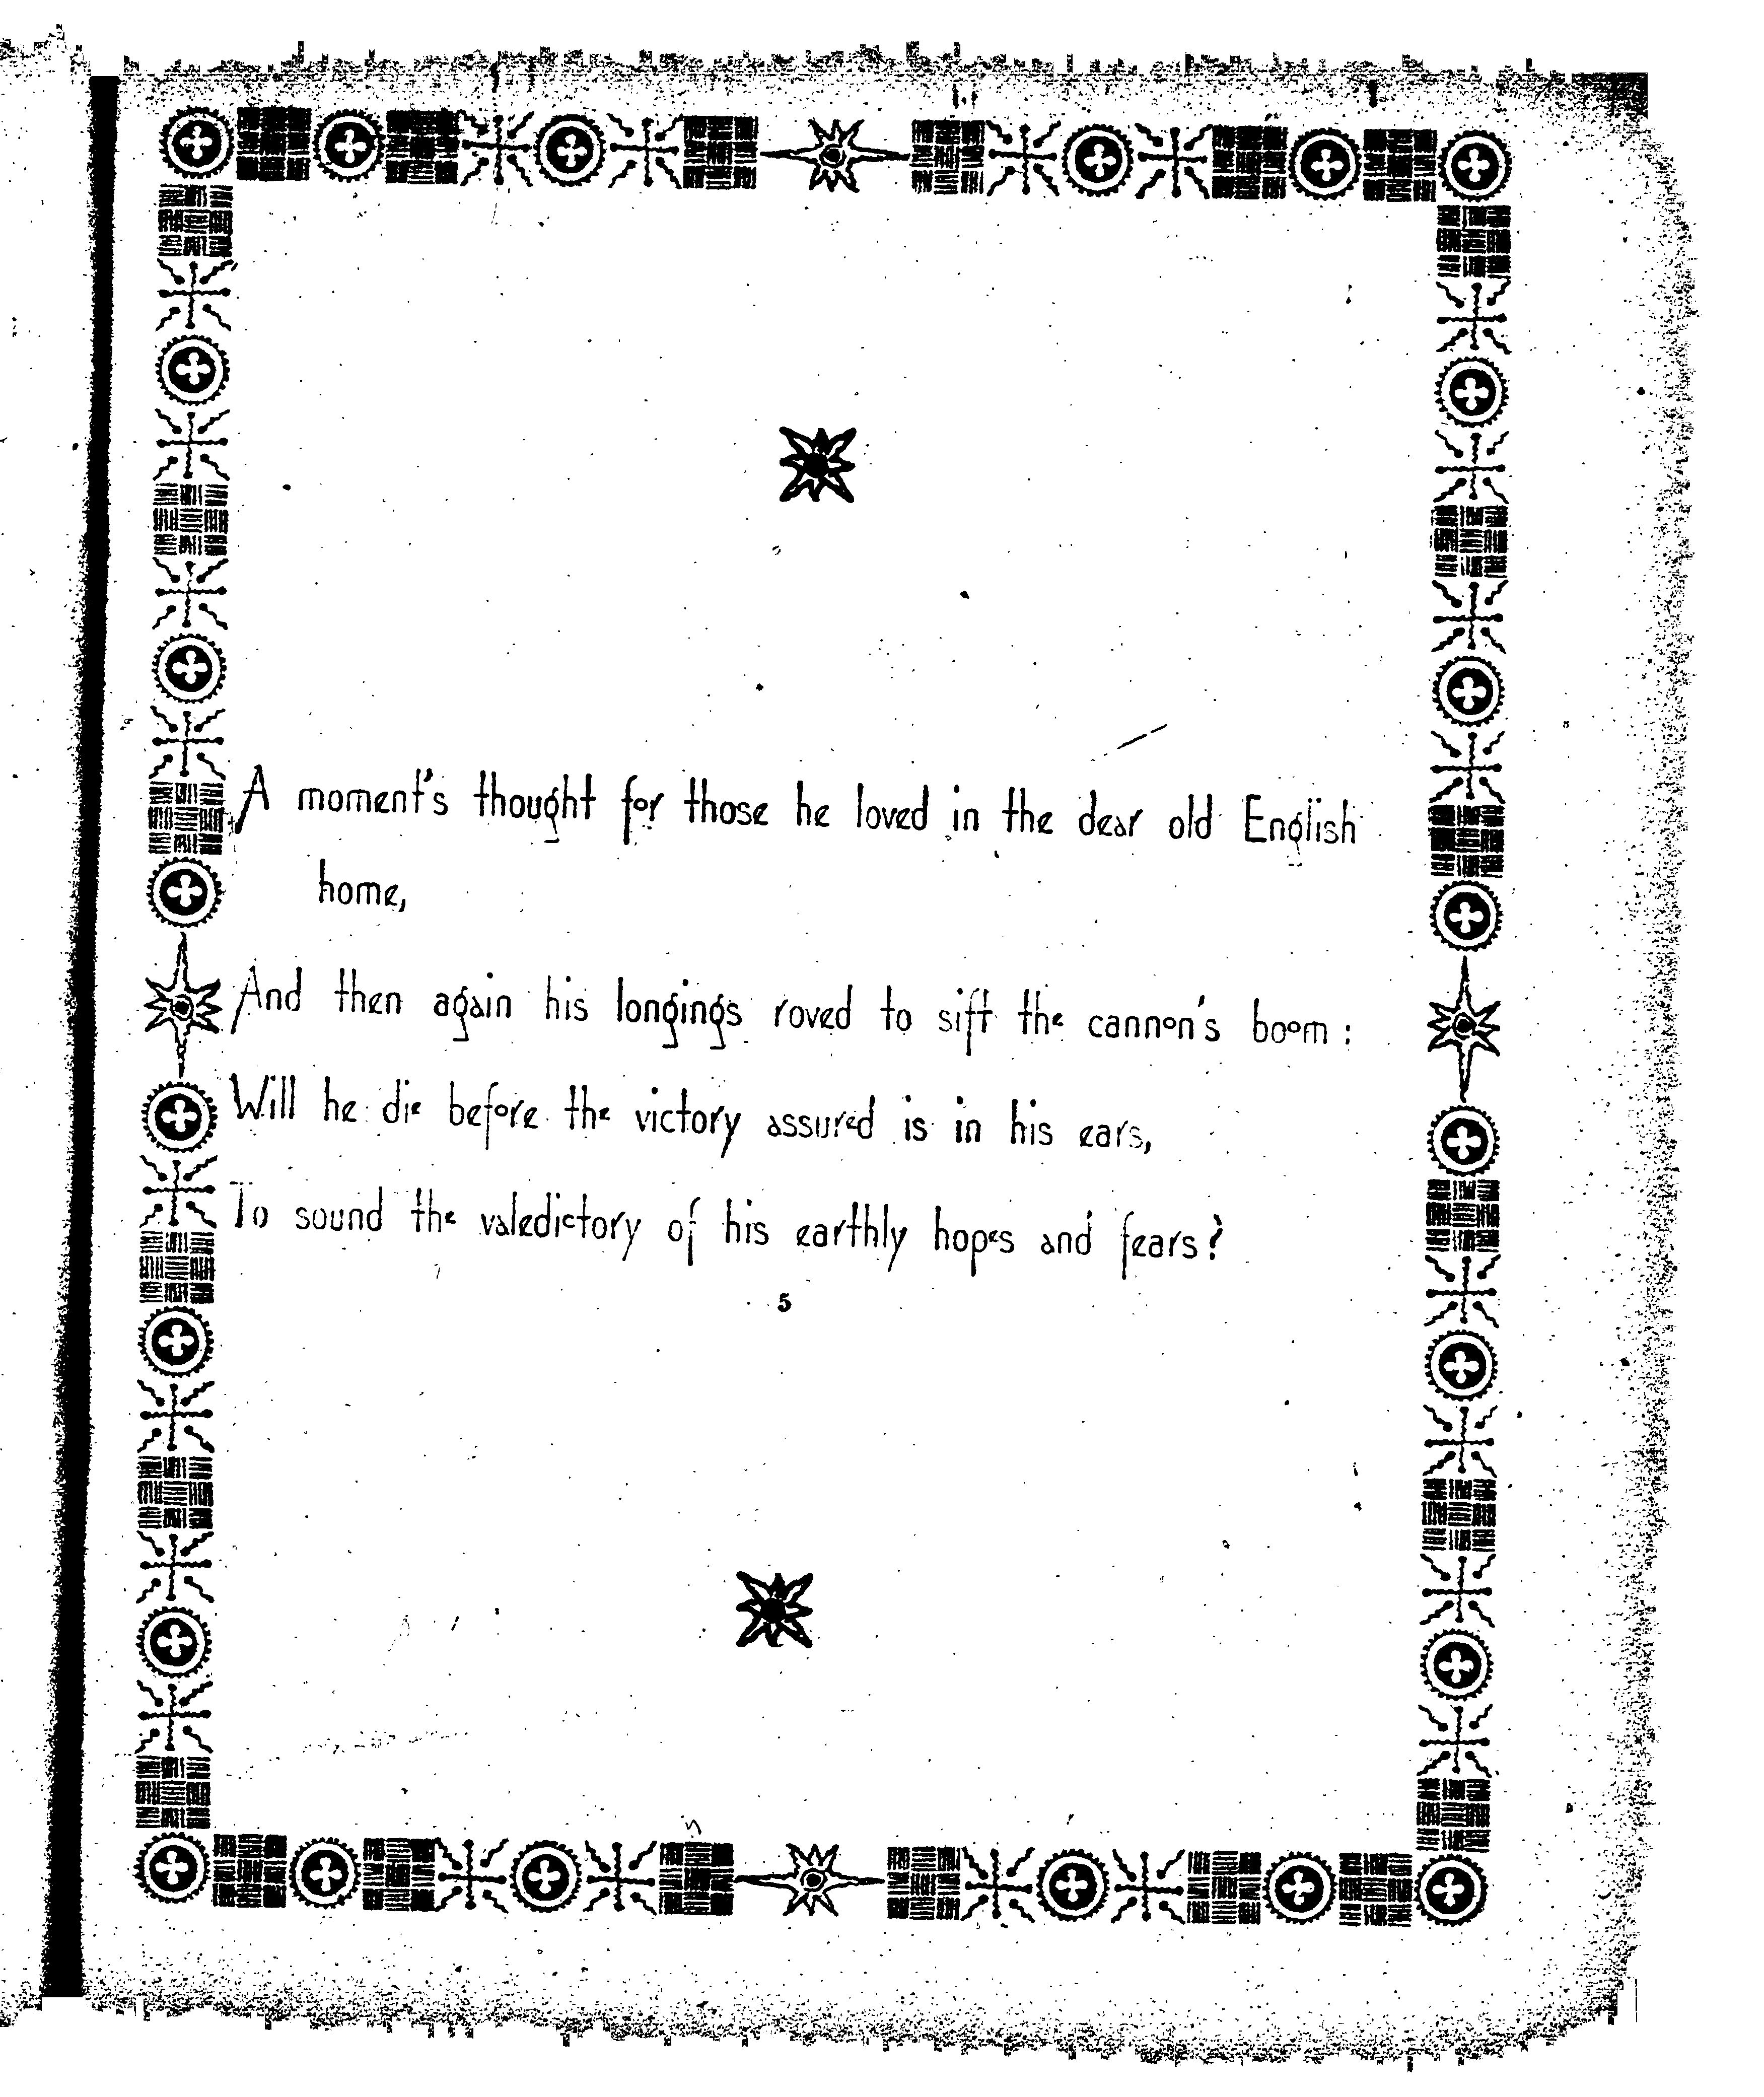 A moment's thought for those he loved in the dear old English
home,
And then again his longings roved to sift the cannon's boom :
Will he die before the victory assured is in his ears,
To sound the valedictory of his earthly hopes and fears?
5